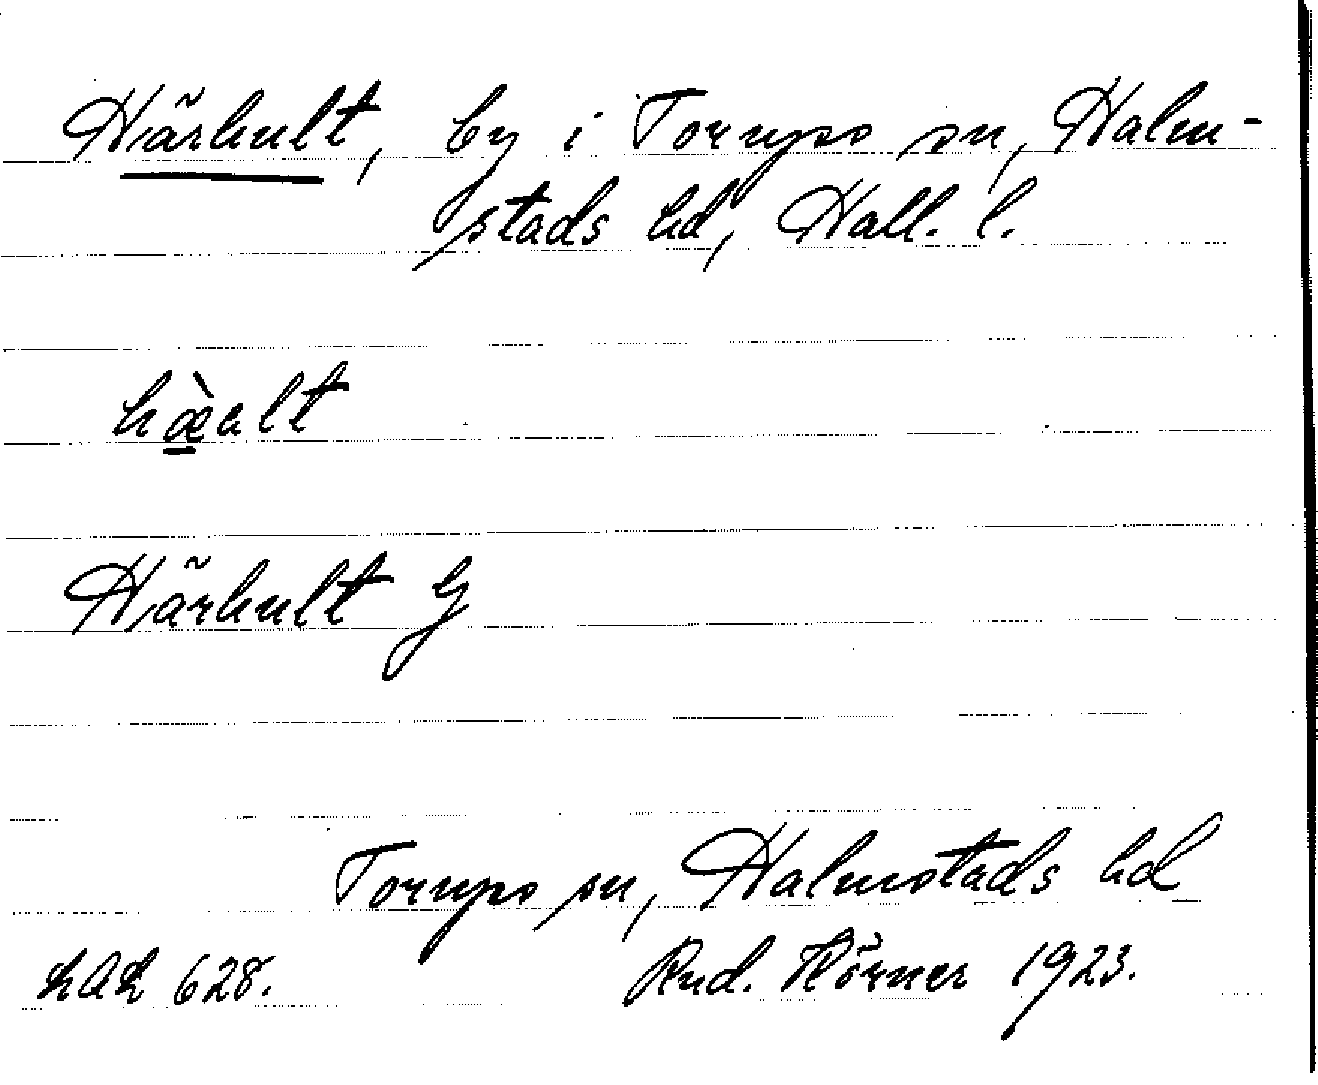 Härhult, by i Torups sn, Halm-
stads hd, Hall. l.
hæ̀alt
Härhult G
Torups sn, Halmstads hd
628. Rud. Hörner 1923.